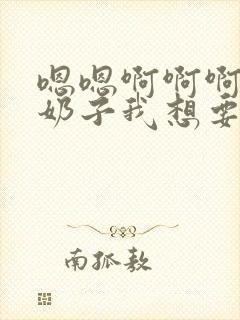 嗯嗯啊啊啊
奶子我想要
南孤敖